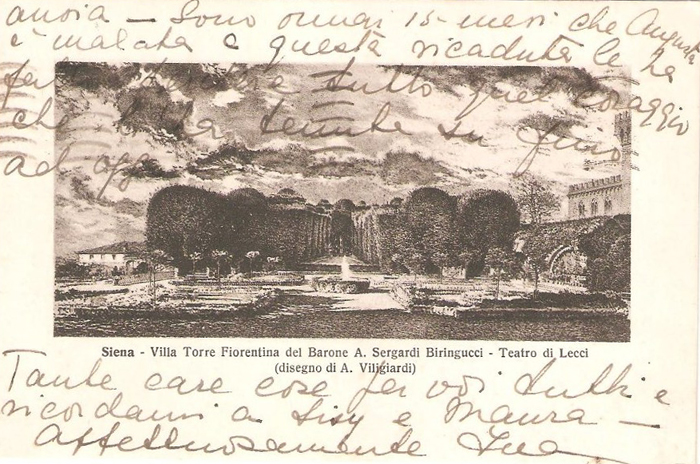 ansia – Sono ormai 15 mesi che Augusta
è malata e questa ricaduta le ha
fatto perdere tutto quel coraggio
che l'ha tenuta su fino
ad oggi
Siena - Villa Torre Fiorentina del Barone A. Sergardi Biringucci - Teatro di Lecci
(disegno di A. Viligiardi)
Tante care cose per voi tutti e
ricordami a Lisy e Maura –
affettuosamente